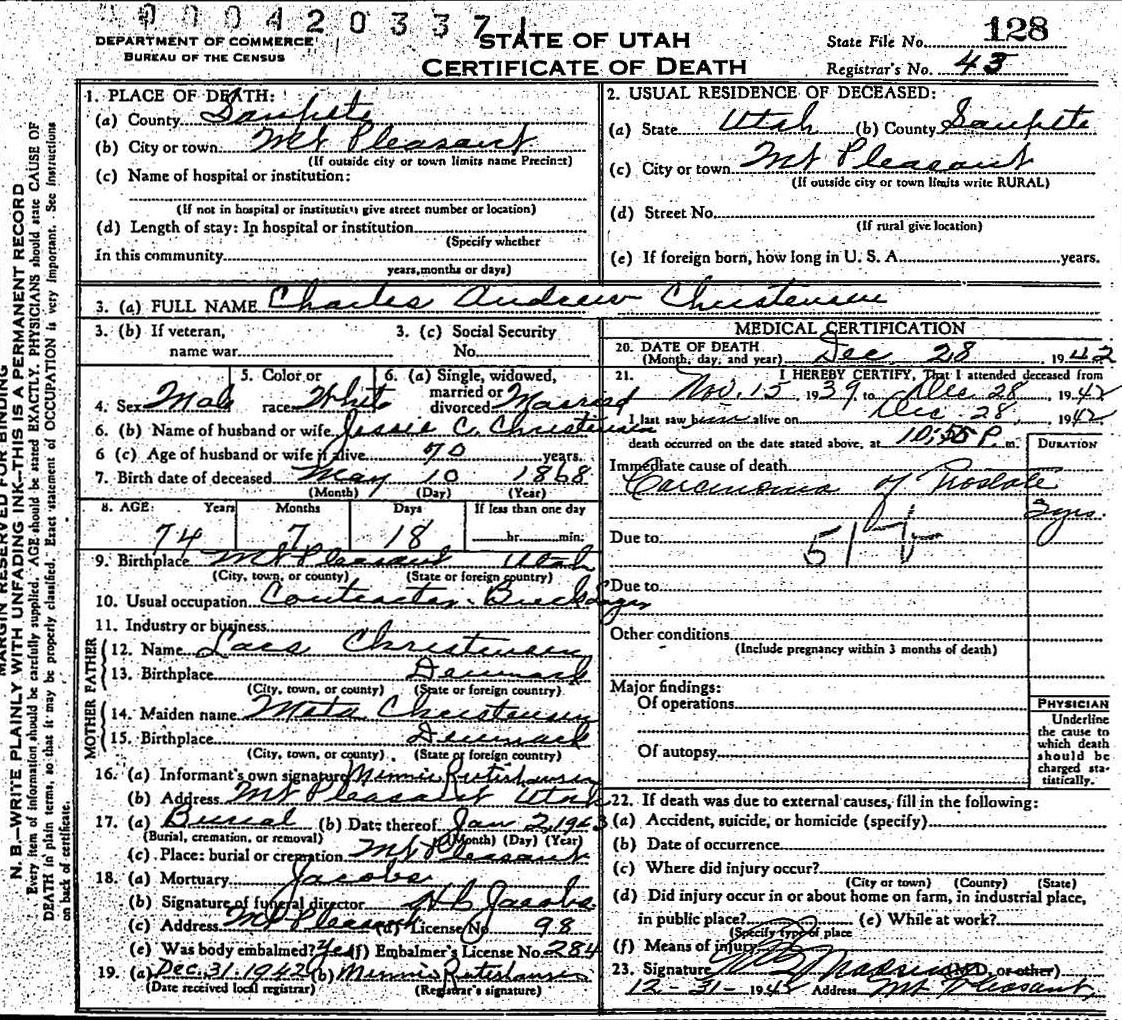 0 0 0 4 2 0 3 3 7 1
DEPARTMENT OF COMMERCE
BUREAU OF THE CENSUS
STATE OF UTAH
CERTIFICATE OF DEATH
State File No. 128
Registrar's No. 43
MARGIN RESERVED FOR BINDING
N. B.—WRITE PLAINLY WITH UNFADING INK—THIS IS A PERMANENT RECORD
Every item of information should be carefully supplied. AGE should be stated EXACTLY. PHYSICIANS should state CAUSE OF
DEATH in plain terms, so that it may be properly classified. Exact statement of OCCUPATION is very important. See instructions
on back of certificate.
1. PLACE OF DEATH:
(a) County Sanpete
(b) City or town Mt Pleasant
(If outside city or town limits name Precinct)
(c) Name of hospital or institution:
(If not in hospital or institution give street number or location)
(d) Length of stay: In hospital or institution
(Specify whether
In this community
years, months or days)
2. USUAL RESIDENCE OF DECEASED:
(a) State Utah (b) County Sanpete
(c) City or town Mt Pleasant
(If outside city or town limits write RURAL)
(d) Street No.
(If rural give location)
(e) If foreign born, how long in U. S. A. years.
3. (a) FULL NAME Charles Andrew Christensen
3. (b) If veteran, name war
3. (c) Social Security No.
4. Sex Male
5. Color or race White
6. (a) Single, widowed, married or divorced Married
6. (b) Name of husband or wife Jessie C. Christensen
6 (c) Age of husband or wife if alive 70 years.
7. Birth date of deceased May 10 1868
(Month) (Day) (Year)
8. AGE: Years Months Days If less than one day
74 7 18 hr. min.
9. Birthplace Mt Pleasant Utah
(City, town, or county) (State or foreign country)
10. Usual occupation Contractor
11. Industry or business
FATHER
12. Name Lars Christensen
13. Birthplace Denmark
(City, town, or county) (State or foreign country)
MOTHER
14. Maiden name Mata Christensen
15. Birthplace Denmark
(City, town, or county) (State or foreign country)
16. (a) Informant's own signature Minnie Rutishauser
(b) Address Mt Pleasant Utah
17. (a) Burial (b) Date thereof Jan 2, 1943
(Burial, cremation, or removal) (Month) (Day) (Year)
(c) Place: burial or cremation Mt Pleasant
18. (a) Mortuary Jacobs
(b) Signature of funeral director H B Jacobs
(c) Address Mt Pleasant (d) License No 98
(e) Was body embalmed? Yes (f) Embalmer's License No. 284
19. (a) Dec. 31. 1942 (b) Minnie Rutishauser
(Date received local registrar) (Registrar's signature)
MEDICAL CERTIFICATION
20. DATE OF DEATH
(Month, day, and year) Dec 28, 1942
21. I HEREBY CERTIFY, That I attended deceased from
Nov. 15 1939, to Dec. 28, 1942
I last saw him alive on Dec. 28, 1942
death occurred on the date stated above, at 10:55 P. m.
DURATION
Immediate cause of death
Carcinoma of Prostate
3 yrs.
Due to
Due to
Other conditions
(Include pregnancy within 3 months of death)
Major findings:
Of operations
Of autopsy
PHYSICIAN
Underline
the cause to
which death
should be
charged sta-
tistically.
22. If death was due to external causes, fill in the following:
(a) Accident, suicide, or homicide (specify)
(b) Date of occurrence
(c) Where did injury occur?
(City or town) (County) (State)
(d) Did injury occur in or about home on farm, in industrial place,
in public place? (e) While at work?
(Specify type of place
(f) Means of injury
23. Signature Madsen (M.D. or other)
12-31-1942 Address Mt Pleasant,